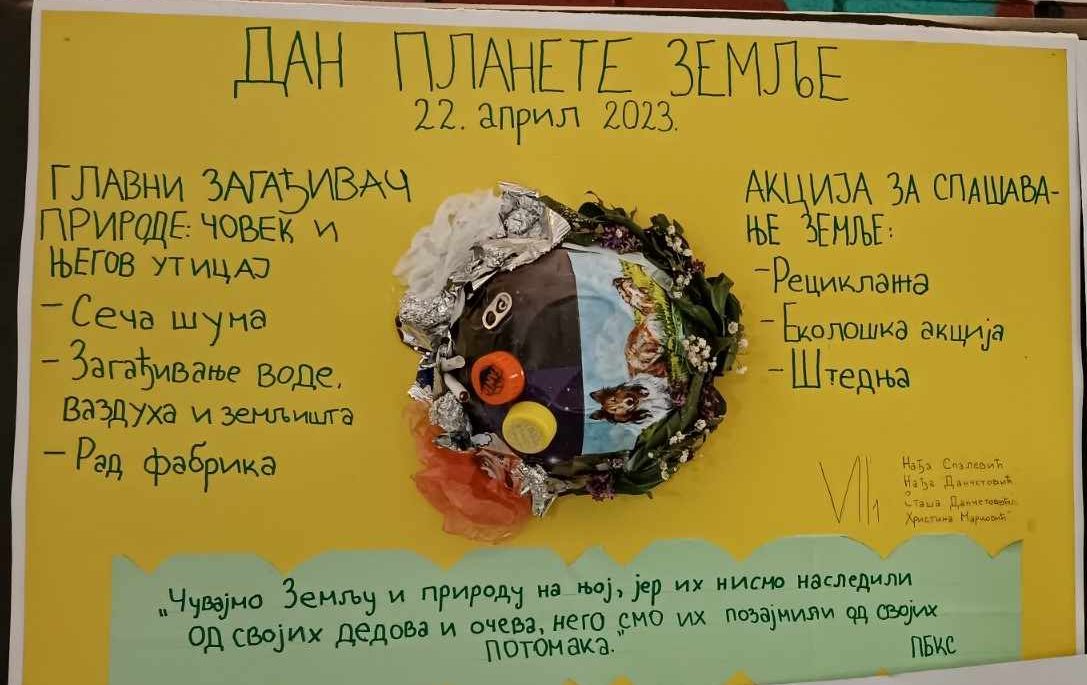 ДАН ПЛАНЕТЕ ЗЕМЉЕ
22. април 2023.
ГЛАВНИ ЗАГАЂИВАЧ
ПРИРОДЕ: ЧОВЕК И
ЊЕГОВ УТИЦАЈ
- Сеча шума
- Загађивање воде,
ваздуха и земљишта
- Рад фабрика
АКЦИЈА ЗА СПАШАВА-
ЊЕ ЗЕМЉЕ:
- Рециклажа
- Еколошка акција
- Штедња
VII1
Нађа Спалевић
Нађа Данчетовић
Сташа Данчетовић
Христина Марковић
„Чувајмо Земљу и природу на њој, јер их нисмо наследили
од својих дедова и очева, него смо их позајмили од својих
потомака."
ПБКС